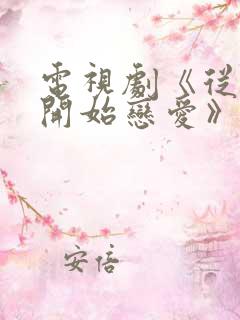 電視劇《從
開始戀愛》
安倍